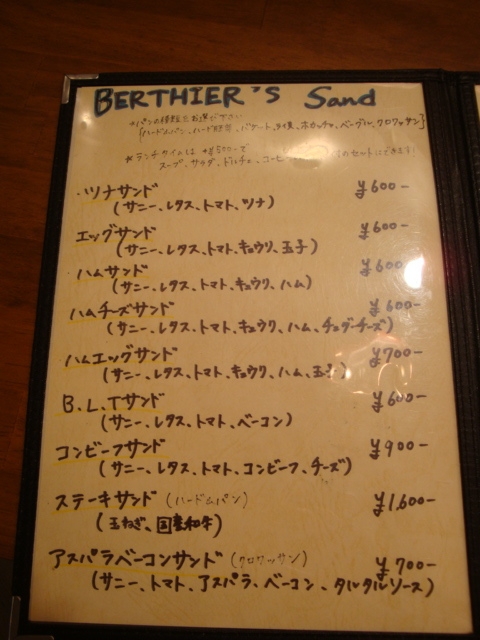 BERTHIER'S Sand
*パンの種類をお選び下さい
(ハードムパン、バケット、フォカッチャ、ベーグル、クロワッサン)
*ランチタイムは +¥500-で
スープ、サラダ、ドルチェ、コーヒー のセットにできます!
・ツナサンド ¥600-
(サニー、レタス、トマト、ツナ)
エッグサンド ¥600-
(サニー、レタス、トマト、キュウリ、玉子)
ハムサンド ¥600-
(サニー、レタス、トマト、キュウリ、ハム)
ハムチーズサンド ¥600-
(サニー、レタス、トマト、キュウリ、ハム、チェダーチーズ)
ハムエッグサンド ¥700-
(サニー、レタス、トマト、キュウリ、ハム、玉子)
B.L.Tサンド ¥600-
(サニー、レタス、トマト、ベーコン)
コンビーフサンド ¥900-
(サニー、レタス、トマト、コンビーフ、チーズ)
ステーキサンド (ハードムパン) ¥1,600-
(玉ねぎ、国産和牛)
アスパラベーコンサンド (クロワッサン) ¥700-
(サニー、トマト、アスパラ、ベーコン、タルタルソース)